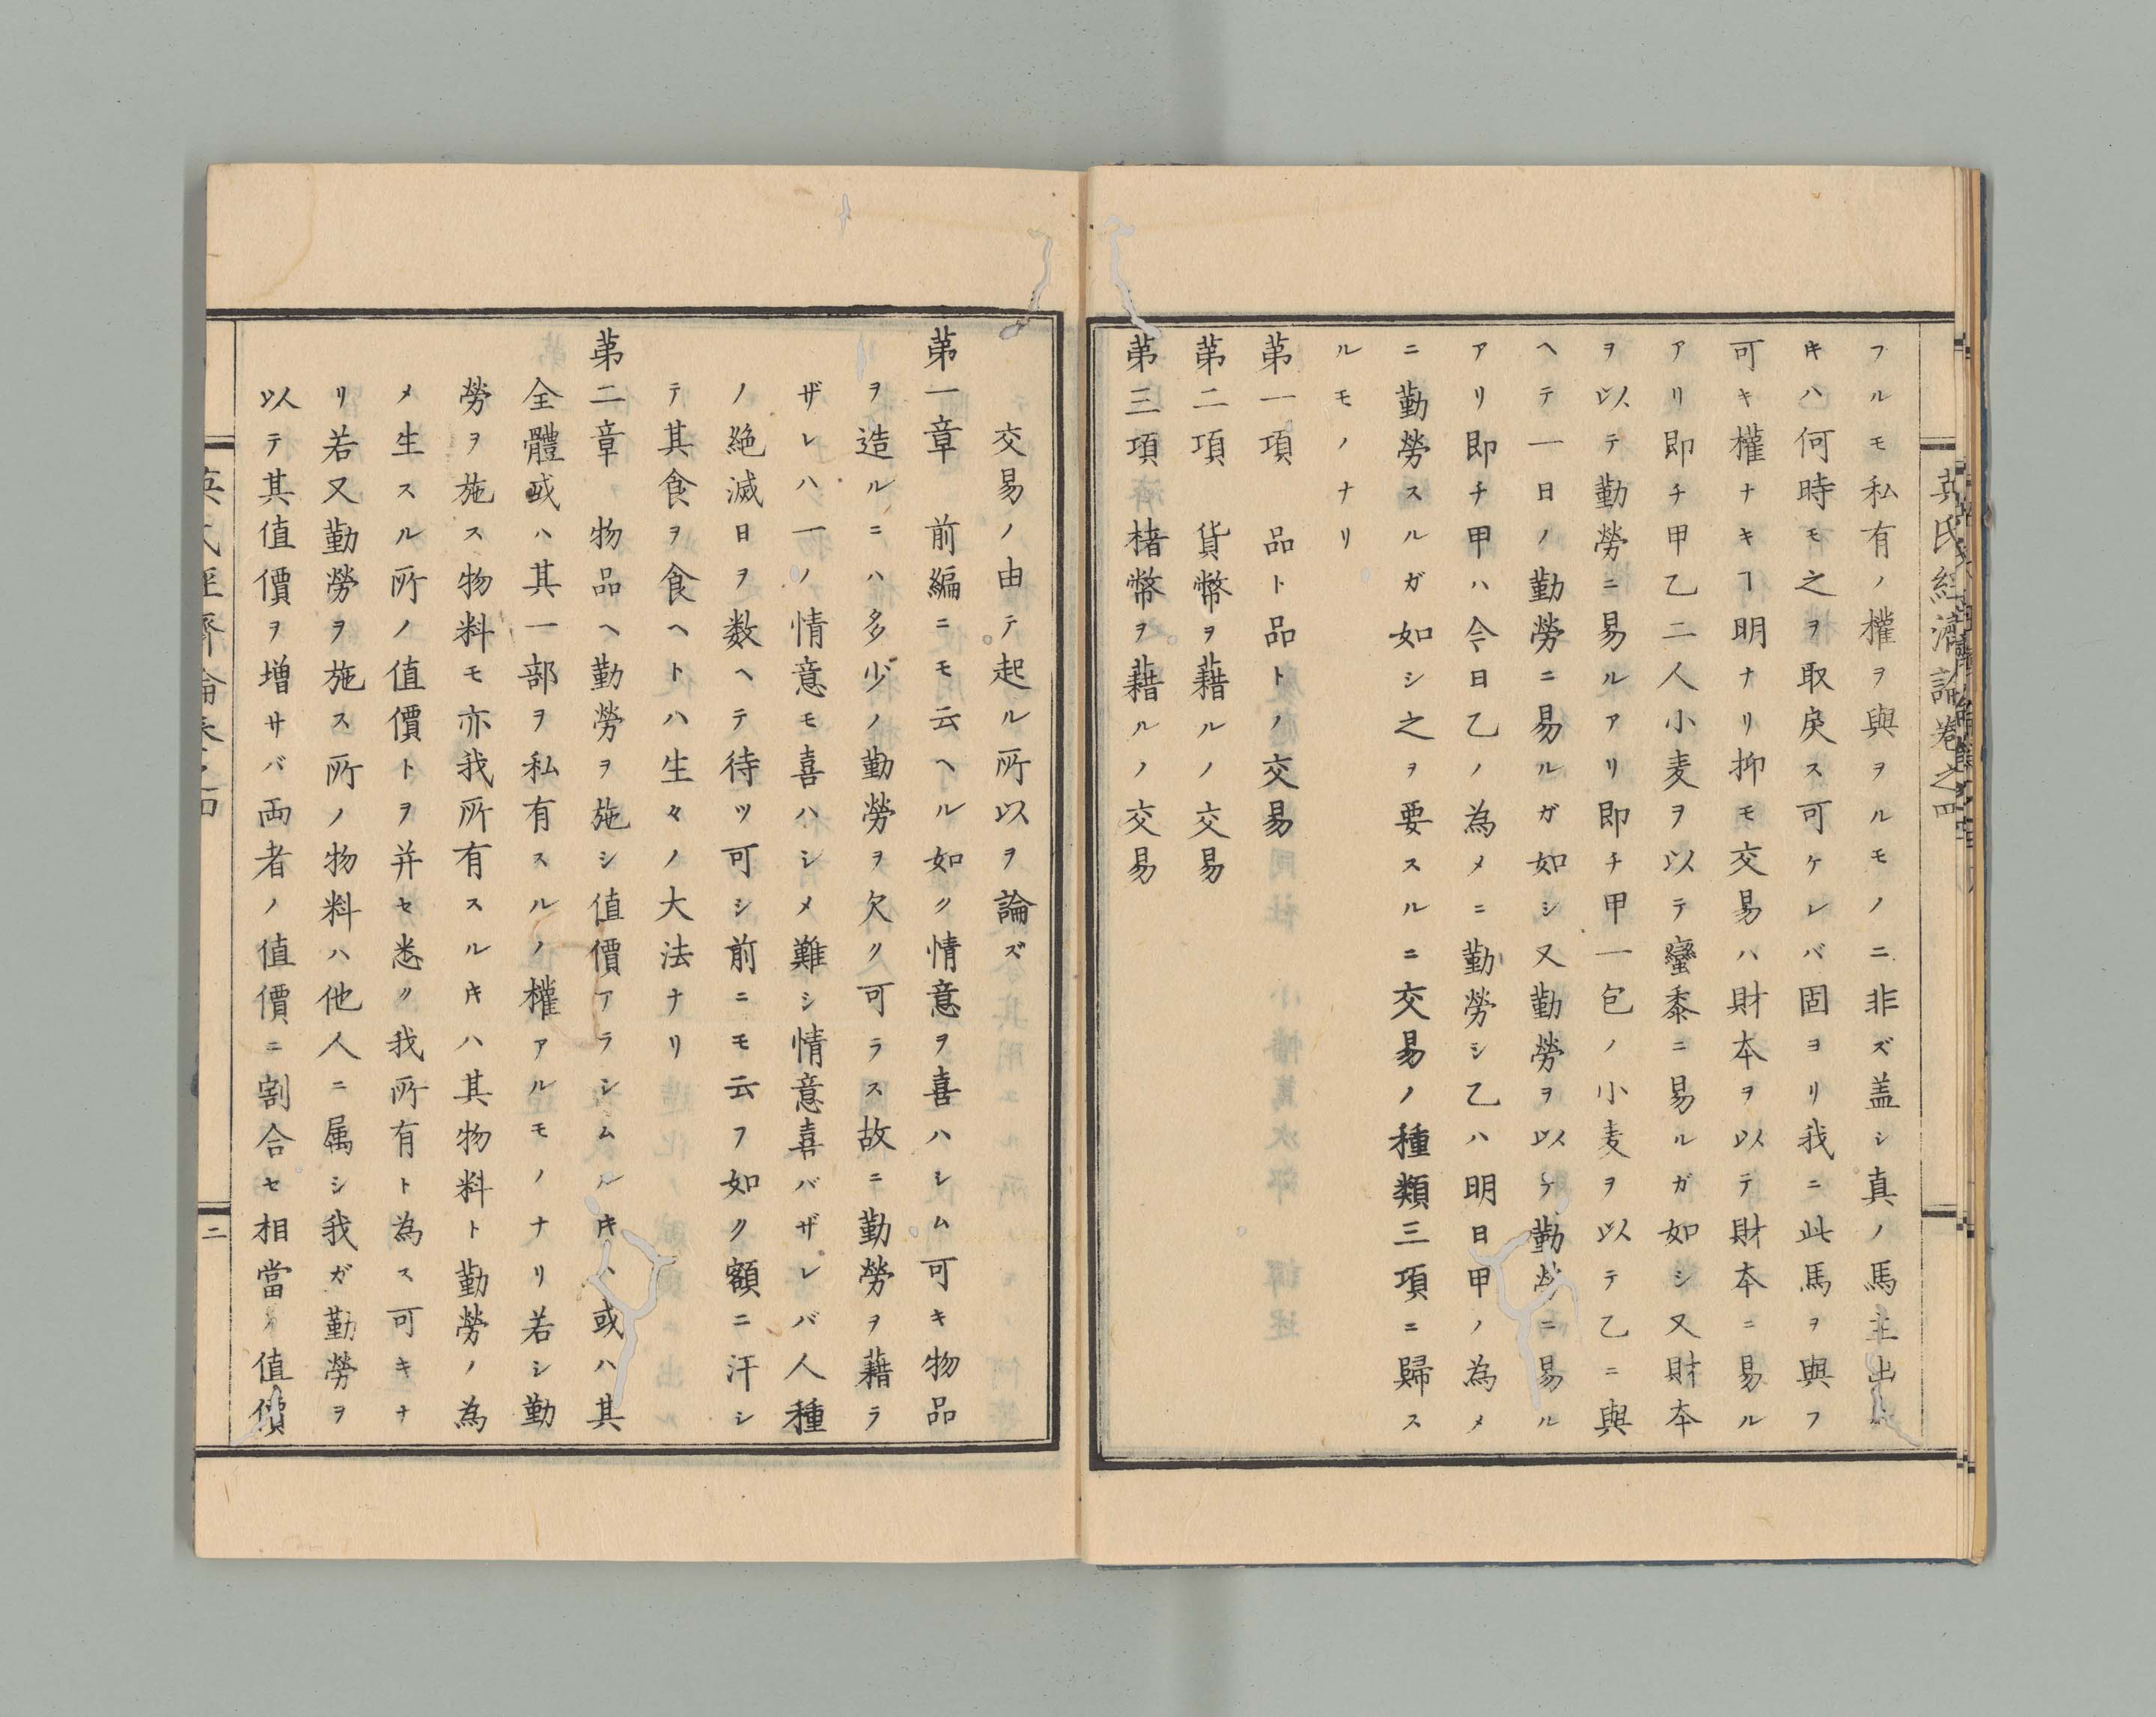 英氏經濟論卷之四
フルモ私有ノ權ヲ與ヲルモノニ非ズ盖シ真ノ馬主出
キハ何時モ之ヲ取戾ス可ケレバ固ヨリ我ニ此馬ヲ與フ
可キ權ナキヿ明ナリ抑モ交易ハ財本ヲ以テ財本ニ易ル
アリ即チ甲乙二人小麦ヲ以テ蠻黍ニ易ルガ如シ又財本
ヲ以テ勤勞ニ易ルアリ即チ甲一包ノ小麦ヲ以テ乙ニ與
ヘテ一日ノ勤勞ニ易ルガ如シ又勤勞ヲ以テ勤勞ニ易ル
アリ即チ甲ハ今日乙ノ為メニ勤勞シ乙ハ明日甲ノ為メ
ニ勤勞スルガ如シ之ヲ要スルニ交易ノ種類三項ニ歸ス
ルモノナリ
第一項 品ト品トノ交易
第二項 貨幣ヲ藉ルノ交易
第三項 楮幣ヲ藉ルノ交易
交易ノ由テ起ル所以ヲ論ズ
第一章 前編ニモ云ヘル如ク情意ヲ喜ハシム可キ物品
ヲ造ルニハ多少ノ勤勞ヲ欠ク可ラス故ニ勤勞ヲ藉ラ
ザレハ一ノ情意モ喜ハシメ難シ情意喜バザレバ人種
ノ絶滅日ヲ数ヘテ待ツ可シ前ニモ云フ如ク額ニ汗シ
テ其食ヲ食ヘトハ生々ノ大法ナリ
第二章 物品ヘ勤勞ヲ施シ值價アラシムルキハ或ハ其
全體或ハ其一部ヲ私有スルノ權アルモノナリ若シ勤
勞ヲ施ス物料モ亦我所有スルキハ其物料ト勤勞ノ為
メ生スル所ノ值價トヲ并セ悉ク我所有ト為ス可キナ
リ若又勤勞ヲ施ス所ノ物料ハ他人ニ属シ我ガ勤勞ヲ
以テ其值價ヲ增サバ両者ノ值價ニ割合セ相當ノ值價
二